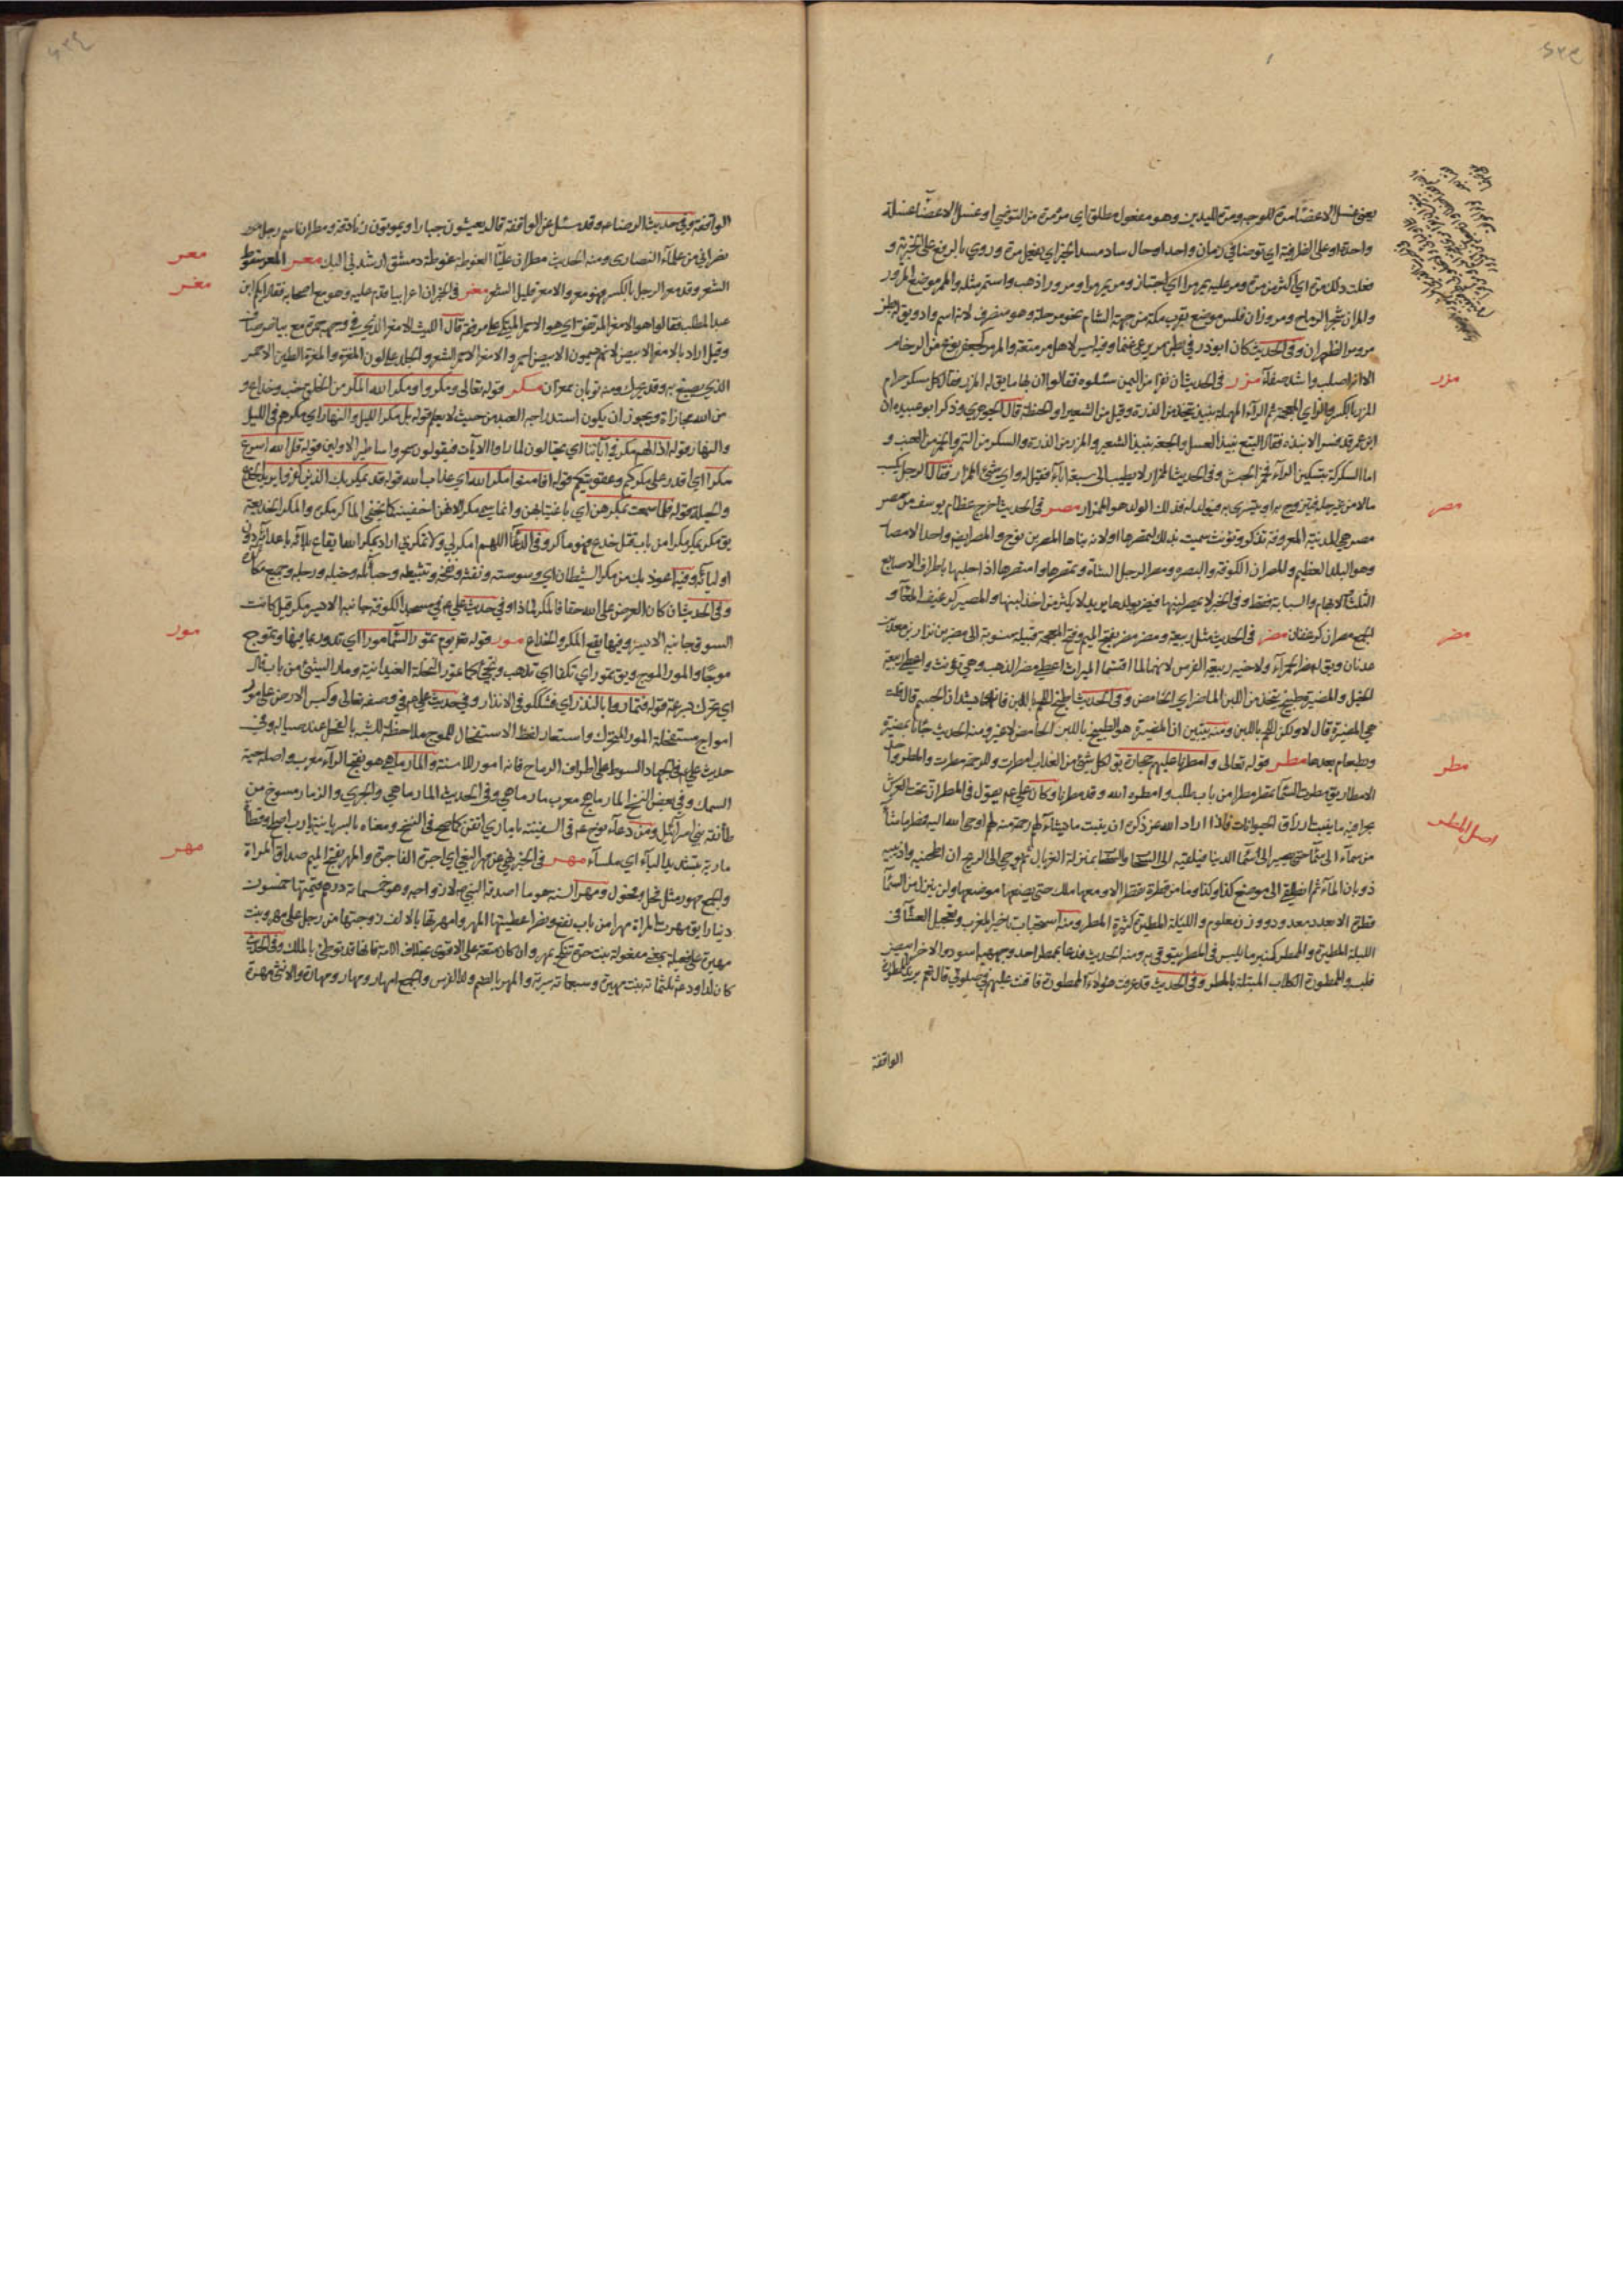 يعنى غسل الاعضاء مرة للوجه ومرة لليدين وهو مفعول مطلق اي مرة مرة من التوضي او غسل الاعضاء غسلة
واحدة او على الظرفية اي توضا في زمان واحد او حال ساد مسد الخبر اي يفعل مرة وروي بالرفع على الخبرية و
فعلت ذلك مرة اي اكثر من مرة ومر عليه يمر مرا اي اجتاز ومر يمر مرا ومرورا ذهب واستمر مثله والممر موضع المرور
والمران شجر الرماح ومر وزان فلس موضع بقرب مكة من جهة الشام نحو مرحلة وهو منصرف لانه اسم واد ويق له بطن
مر ومر الظهران وفى الحديث كان ابوذر في بطن مر يرعى غنما وفيه ليس لاهل مر متعة والمرمر كجعفر نوع من الرخام
الا انه اصلب واشد صفاء مزر فى الحديث ان نفرا من اليمن سئلوه فقالوا ان بها ما يق له المزر فقال كل مسكر حرام
المزر بالكسر والزاي المعجمة ثم الراء المهملة نبيذ يتخذ من الذرة وقيل من الشعير او الحنطة قال الجوهري وذكر ابو عبيد ان
ابن عمر قد فسر الانبذة فقال البتع نبيذ العسل والجعة نبيذ الشعير والمزر من الذرة والسكر من التمر والخمر من العنب و
اما السكركة بتسكين الراء فخمر الحبش وفى الحديث المزار لا يطيب الى سبعة اباء فقيل له واي شئ المزار فقال الرجل يكسب
مالا من غير حله فيتزوج به او يتسرى به فيولد له فذلك الولد هو المزار مصر فى الحديث اخرج عظام يوسف من مصر
مصر هي المدينة المعروفة تذكر وتؤنث سميت بذلك لتمصرها او لانه بناها المصر بن نوح والمصر ايضا واحد الامصار
وهو البلد العظيم والمصران الكوفة والبصرة ومصر الرجل الشاة وتمصرها وامتصرها اذا حلبها باطراف الاصابع
الثلث او الابهام والسبابة فقط وفى الخبر لا يمصر لبنها فيضر بولدها يريد لا يكثر من اخذ لبنها والمصير كرغيف المعا و
الجمع مصران كرغفان مضر فى الحديث مثل ربيعة ومضر مضر بضم الميم وفتح المعجمة قبيلة منسوبة الى مضر بن نزار بن معد بن
عدنان ويق له مضر الحمراء ولاخيه ربيعة الفرس لانهما لما اقتسما الميراث اعطي مضر الذهب وهي تؤنث واعطي ربيعة
الخيل والمضيرة طبيخ يتخذ من اللبن الماضر اي الحامض وفى الحديث
هي المضيرة قال لا ولكن اللحم باللبن ومنه يتبين ان المضيرة هو الطبيخ باللبن الحامض لا غير ومنه الحديث جائنا بمضيرة
وطعام بعدها مطر قوله تعالى وامطرنا عليهم حجارة يق لكل شئ من العذاب امطرت وللرحمة مطرت والمطر واحد
الامطار يق مطرت السماء تمطر مطرا من باب طلب وامطره الله وقد مطرنا وكان علي ع يقول فى المطر ان تحت العرش
بحرا فيه ما ينبت ارزاق الحيوانات فاذا اراد الله عز ذكره ان ينبت ما يشاء لهم رحمة منه لهم اوحى الله اليه فمطر ما شاء
من سماء الى سماء حتى يصير الى سماء الدنيا فيلقيه الى السحاب والسحاب بمنزلة الغربال ثم يوحي الى الريح ان اطحنيه واذيبيه
ذوبان الماء ثم انطلقي الى موضع كذا وكذا وما من قطرة تقطر الا ومعها ملك حتى يضعها موضعها ولن ينزل من السماء
قطرة الا بعدد معدود ووزن معلوم والليلة المطيرة كثيرة المطر ومنه استحباب تاخير المغرب وتعجيل العشاء فى
الليلة المطيرة والممطر كمنبر ما يلبس فى المطر يتوقى به ومنه الحديث فدعا بممطر احد وجهيه اسود والاخر ابيض
فلبسه والممطورة الكلاب المبتلة بالمطر وفى الحديث قد عرفت هؤلاء الممطورة فاقنت عليهم في صلوتي قال نعم يريد بالممطورة
الواقفة
مزر
مصر
مضر
مطر
اصل المطر
الواقفة وفى حديث الرضا ع وقد سئل عن الواقفة قال يعيشون حيارا ويموتون زنادقة ومطران اسم رجل
نصراني من علماء النصارى ومنه الحديث مطران عليا الغوطة غوطة دمشق ارشدني اليك معر المعر سقوط
الشعر وقد معر الرجل بالكسر فهو معر والامعر قليل الشعر مغر فى الخبر ان اعرابيا قدم عليه وهو مع اصحابه فقال ايكم ابن
عبد المطلب فقالوا هو الامغر المرتفق اي هو الاحمر المتكي على مرفقه قال الليث الامغر الذي في وجهه حمرة مع بياض صاف
وقيل اراد بالامغر الابيض لانهم يسمون الابيض احمر والامغر الاحمر الشعر والجلد على لون المغرة والمغرة الطين الاحمر
الذي يصبغ به وقد يحرك ومنه ثوبان ممغران مكر قوله تعالى ومكروا ومكر الله المكر من الخلق خبث وخداع و
من الله مجازاة ويجوز ان يكون استدراجه العبد من حيث لا يعلم قوله بل مكر الليل والنهار اي مكرهم فى الليل
والنهار قوله اذا لهم مكر في آياتنا اي يحتالون لما راوا الايات فيقولون سحر واساطير الاولين قوله قل الله اسرع
مكرا اي اقدر على مكركم وعقوبتكم قوله افامنوا مكر الله اي عذاب الله قوله واذ يمكر بك الذين كفروا
والحيلة قوله فلما سمعت بمكرهن اي باغتيابهن وانما سمي مكرا لانهن اخفينه كما يخفي الماكر مكره والمكر الخديعة
يق مكر يمكر مكرا من باب قتل خدع فهو ماكر وفى الدعاء اللهم امكر لي ولا تمكر بي اراد بمكر الله ايقاع بلائه باعدائه دون
اوليائه وفيه اعوذ بك من مكر الشيطان اي وسوسته ونفثه ونفخه وتثبيطه وحبائله وخيله ورجله وجميع مكائده
وفى الحديث ان كان العرض على الله حقا فالمكر لماذا وفي حديث علي ع في مسجد الكوفة جانبه الايسر مكر قيل كانت
السوق جانبه الايسر وفيها يقع المكر والخداع مور قوله تع يوم تمور السماء مورا اي تدور بما فيها وتموج
موجا والمور الموج ويق تمور اي تكفا اي تذهب وتجئ كما تمور النخلة العيدانية ومار الشئ من باب قال
اي تحرك بسرعة قوله فتماروا بالنذر اي فشككوا في الانذار وفي حديث علي ع في وصفه تعالى وكبس الارض على مور
امواج مستفحلة المور التحرك واستعار لفظ الاستفحال للموج ملاحظة للشبه بالفحل عند صياله وفى
حديث علي ع في الجهاد التووا على اطراف الرماح فانه امور للاسنة والمارماهي هو بفتح الراء معرب واصله حية
السمك وفي بعض النسخ المارماهج معرب مارماهي وفى الحديث المارماهي والجري والزمار مسوخ من
طائفة بني اسرائيل ومن دعاء نوح ع فى السفينة يا ماري اتقن كما صح فى النسخ ومعناه بالسريانية يا رب اصلح وقطاة
مارية بتشديد الياء اي ملساء مهر فى الخبر نهى عن مهر البغي اي اجرة الفاجرة والمهر بفتح الميم صداق المراة
والجمع مهور مثل فحل وفحول ومهر السنة هو ما اصدقه النبي ص لازواجه وهو خمسمائة درهم قيمتها خمسون
دينارا يق مهرت المراة مهرا من باب نفع ونصر اعطيتها المهر وامهرتها بالالف زوجتها من رجل على مهر وبنت
مهيرة على فعيلة بمعنى مفعولة بنت حرة تنكح بمهر وان كان متعة على الاقوى بخلاف الامة فانها قد توطئ بالملك وفى الحديث
كان لداود ع ثلثمائة بنت مهيرة وسبعمائة سرية والمهر بالضم ولد الفرس والجمع امهار ومهار ومهارة والانثى مهرة
معر
مغر
مور
مهر